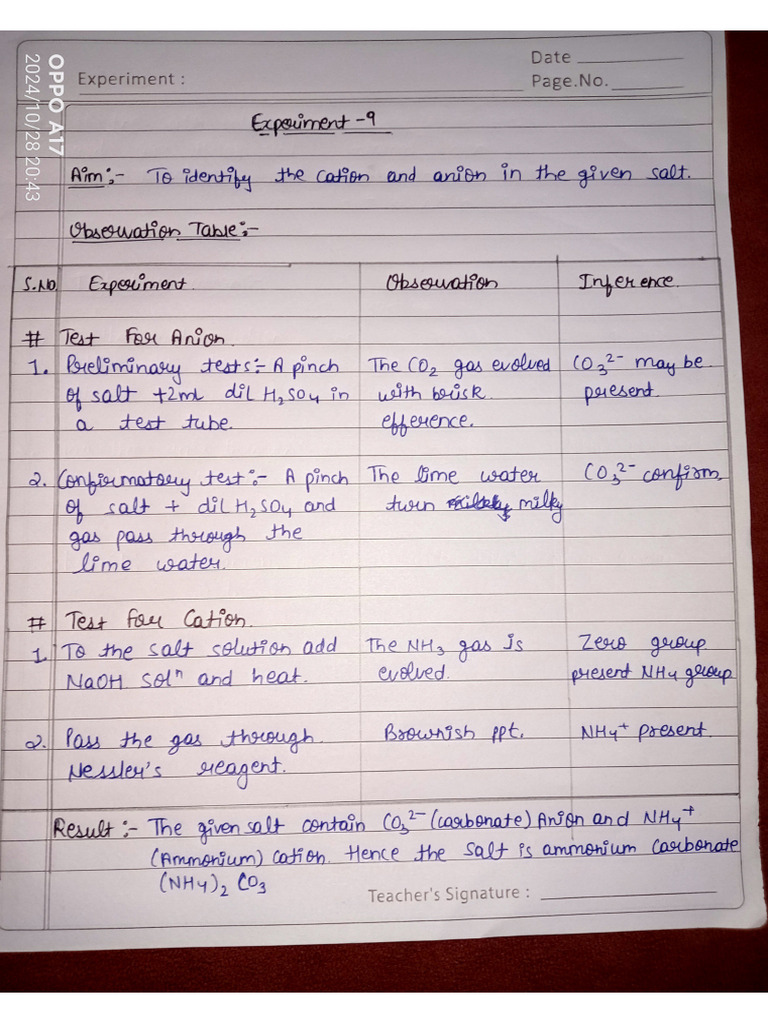 OPPO A17
2024/10/28 20:43
Date
Experiment :
Page.No.
Experiment -9
Aim:- To identify the cation and anion in the given salt.
Observation Table:-
S.No. Experiment Observation Inference
# Test For Anion
1. Preliminary tests:- A pinch The CO2 gas evolved CO3²⁻ may be
of salt +2ml dil H2SO4 in with brisk present
a test tube. efference.
2. Confirmatory test:- A pinch The lime water CO3²⁻ confirm
of salt + dil H2SO4 and turn milky
gas pass through the
lime water.
# Test for Cation
1. To the salt solution add The NH3 gas is Zero group
NaOH Solⁿ and heat. evolved. present NH4 group
2. Pass the gas through Brownish ppt. NH4⁺ present
Nessler's reagent.
Result:- The given salt contain CO3²⁻ (carbonate) Anion and NH4⁺
(Ammonium) cation. Hence the salt is ammonium carbonate
(NH4)2 CO3
Teacher's Signature :